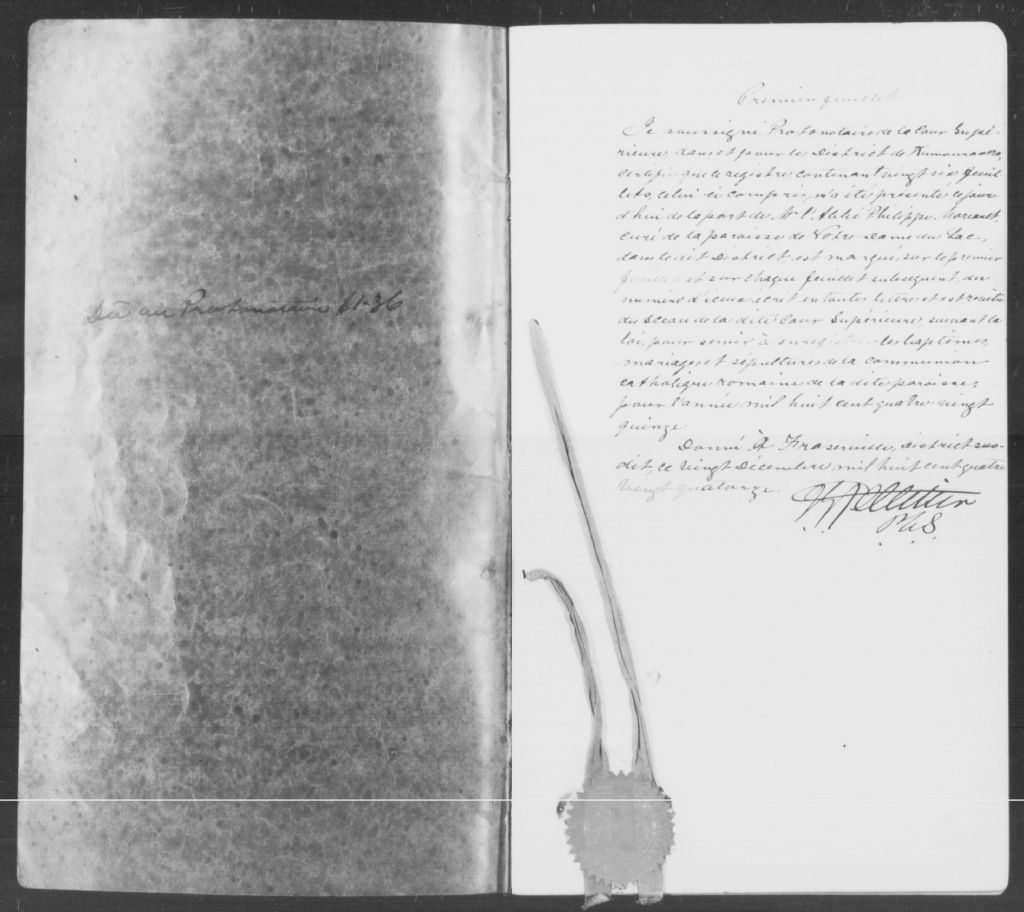 Dû au Protonotaire $1.36
Premier feuillet
Je soussigné, Protonotaire de la Cour Supé-
rieure, dans et pour le District de Kamouraska,
certifie que le registre contenant vingt six feuil
lets, celui-ci compris, m'a été présenté ce jour
d'hui de la part de Mr l'Abbé Philippe
curé de la paroisse de Notre-Dame du Lac,
dans le dit District est marqué, sur le premier
feuillet et sur chaque feuillet subséquent, du
numéro d'iceux écrit en toutes lettres et est revêtu
du Sceau de la dite Cour Supérieure, suivant la
loi, pour servir à enregistrer les baptêmes,
mariages et sépultures de la communion
catholique romaine de la dite paroisse,
pour l'année mil huit cent quatre-vingt
quinze.
Donné à Fraserville, District sus-
dit, ce vingt Décembre, mil huit cent quatre
vingt quatorze.
Pelletier
P.C.S.